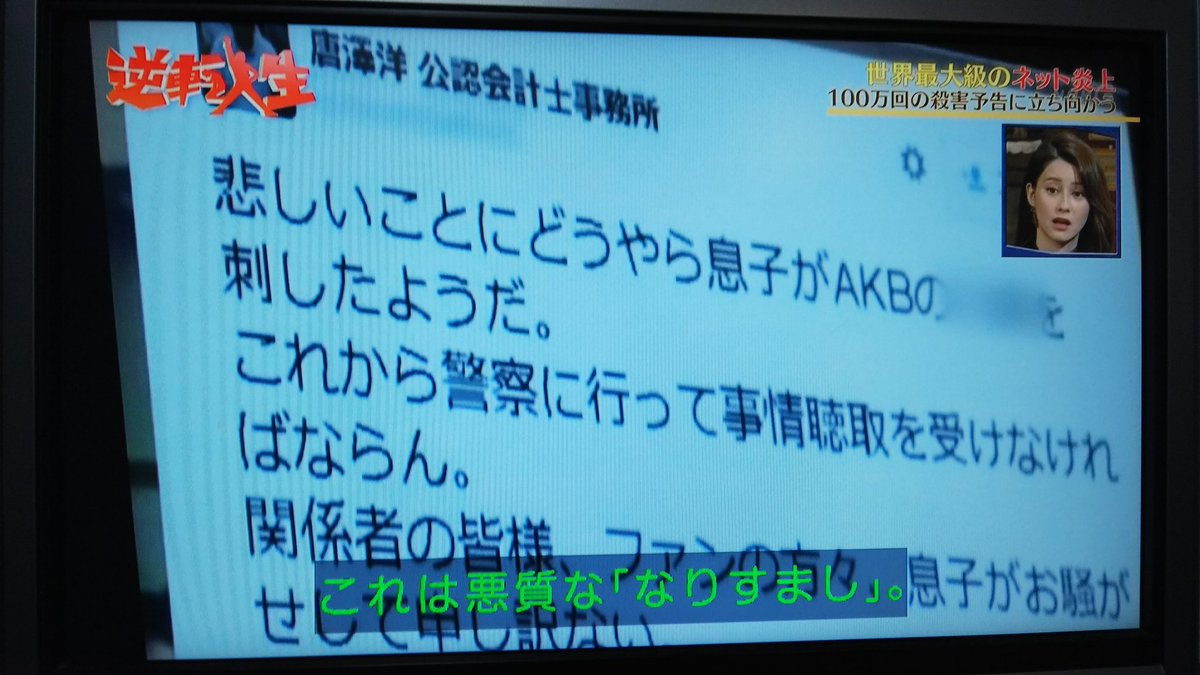 逆転人生
世界最大級のネット炎上
100万回の殺害予告に立ち向かう
唐澤洋 公認会計士事務所
悲しいことにどうやら息子がAKBの
を
刺したようだ。
これから警察に行って事情聴取を受けなけれ
ばならん。
関係者の皆様、ファンの方々 息子がお騒が
せして申し訳ない
これは悪質な「なりすまし」。